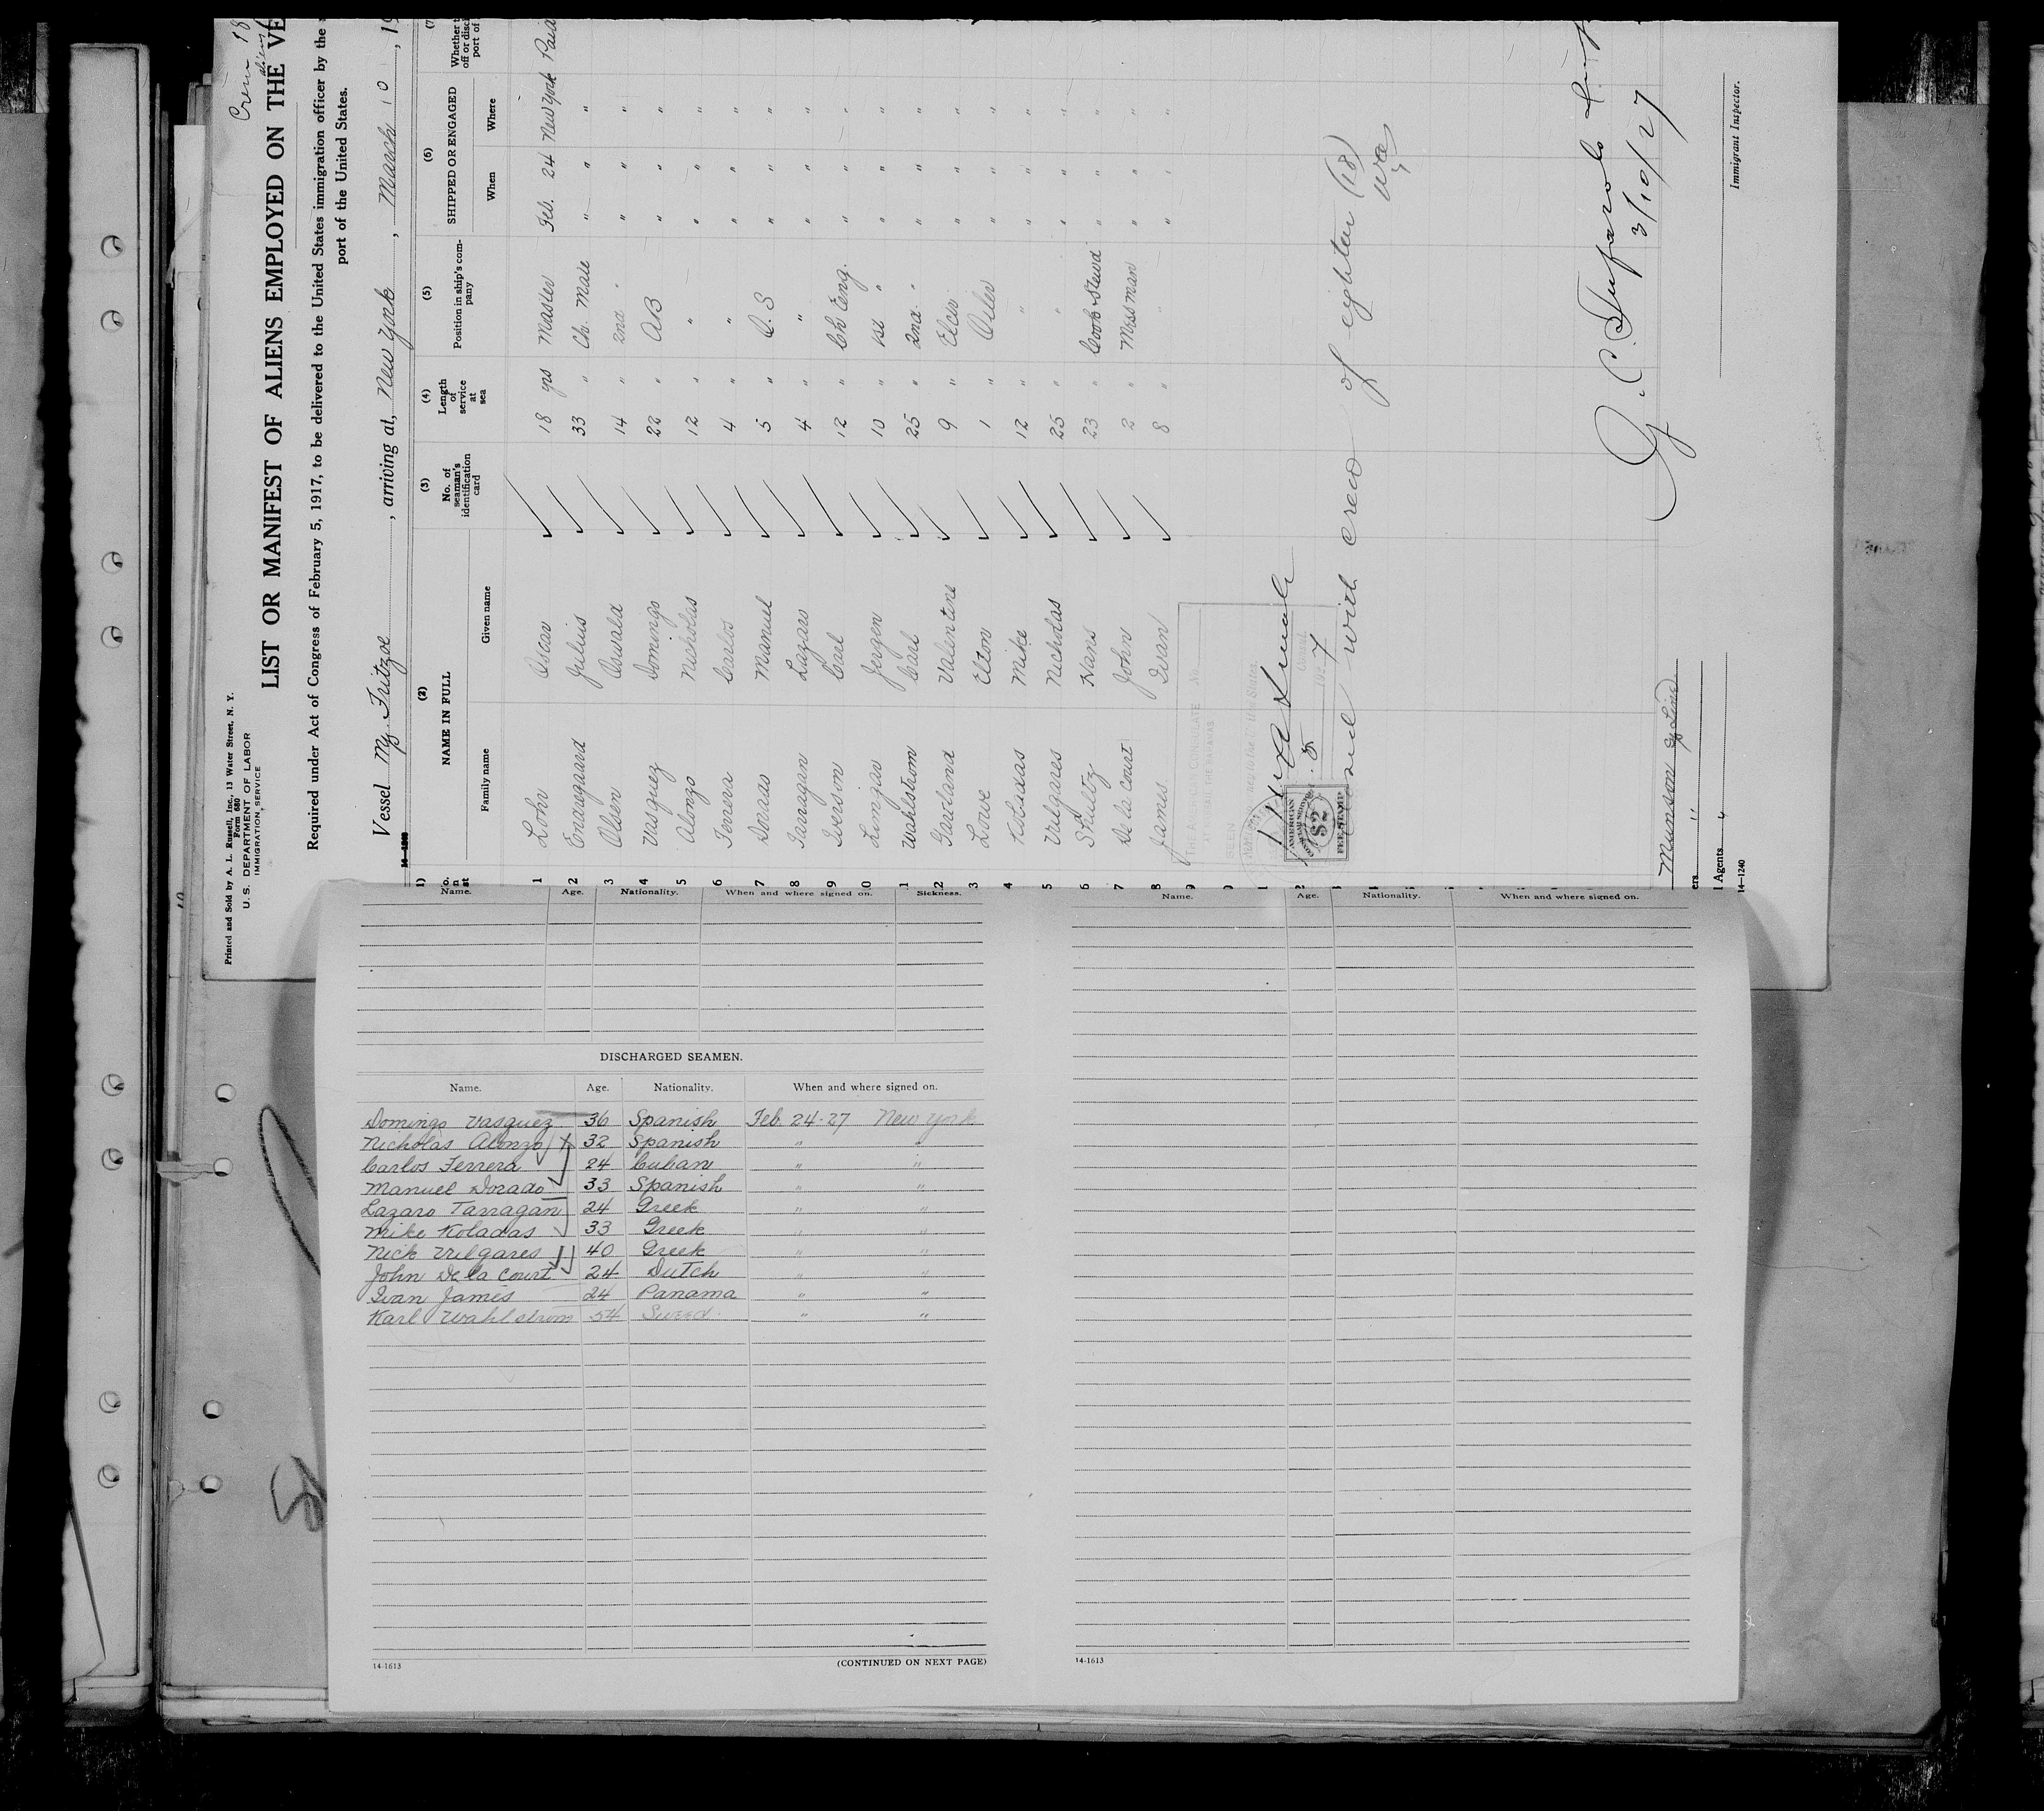 Crew 18
aliens
Printed and Sold by A. L. Russell, Inc., 13 Water Street, N. Y.
Form 680
U. S. DEPARTMENT OF LABOR
IMMIGRATION SERVICE
LIST OR MANIFEST OF ALIENS EMPLOYED ON THE VE
Required under Act of Congress of February 5, 1917, to be delivered to the United States immigration officer by the
port of the United States.
Vessel My. Fritzoe, arriving at, New York, March 10, 19
(2) (3) (4) (5) (6) (7)
NAME IN FULL No. of seaman's identification card Length of service at sea Position in ship's company SHIPPED OR ENGAGED
Family name Given name When Where
1 Lohn Oscar 18 yrs Master Feb. 24 New York Paid
2 Enaesgaard Julius 33 " Ch. Mate " " "
3 Olsen Oswald 14 " 2nd " " " "
4 Vasquez Domingo 22 " AB " " "
5 Alonzo Nicholas 12 " " " " "
6 Ferrera Carlos 4 " " " " "
7 Dorado Manuel 5 " O.S " " "
8 Tarragan Lazaro 4 " " " " "
9 Iverson Carl 12 " Ch Eng. " " "
0 Limgar Jergen 10 " 1st " " " "
1 Wahlstrom Carl 25 " 2nd " " " "
2 Garland Valentine 9 " " " "
3 Lowe Elton 1 " Oiler " " "
4 Koladas Mike 12 " " " " "
5 Vulgares Nicholas 25 " " " " "
6 Shultz Hans 23 " Cook Stewd " " "
7 De la Court John 2 " Messman " " "
8 James Ivan 8 " " " " "
9
THE AMERICAN CONSULATE No.
SEEN
AMERICAN
$2
FEE STAMP
with crew of eighteen (18)
3/10/27
Immigrant Inspector.
Munson SS Line
Agents
14—1240
Name. Age. Nationality. When and where signed on. Sickness.
DISCHARGED SEAMEN.
Name. Age. Nationality. When and where signed on.
Domingo Vasquez 36 Spanish Feb. 24-27 New York
Nicholas Alonzo 32 Spanish " "
Carlos Ferrera 24 Cuban " "
Manuel Dorado 33 Spanish " "
Lazaro Tarragan 24 Greek " "
Mike Koladas 33 Greek " "
Nick Vulgares 40 Greek " "
John De la Court 24 Dutch " "
Ivan James 24 Panama " "
Karl Wahlstrom 54 Sweed " "
14-1613
(CONTINUED ON NEXT PAGE)
Name. Age. Nationality. When and where signed on.
14-1613